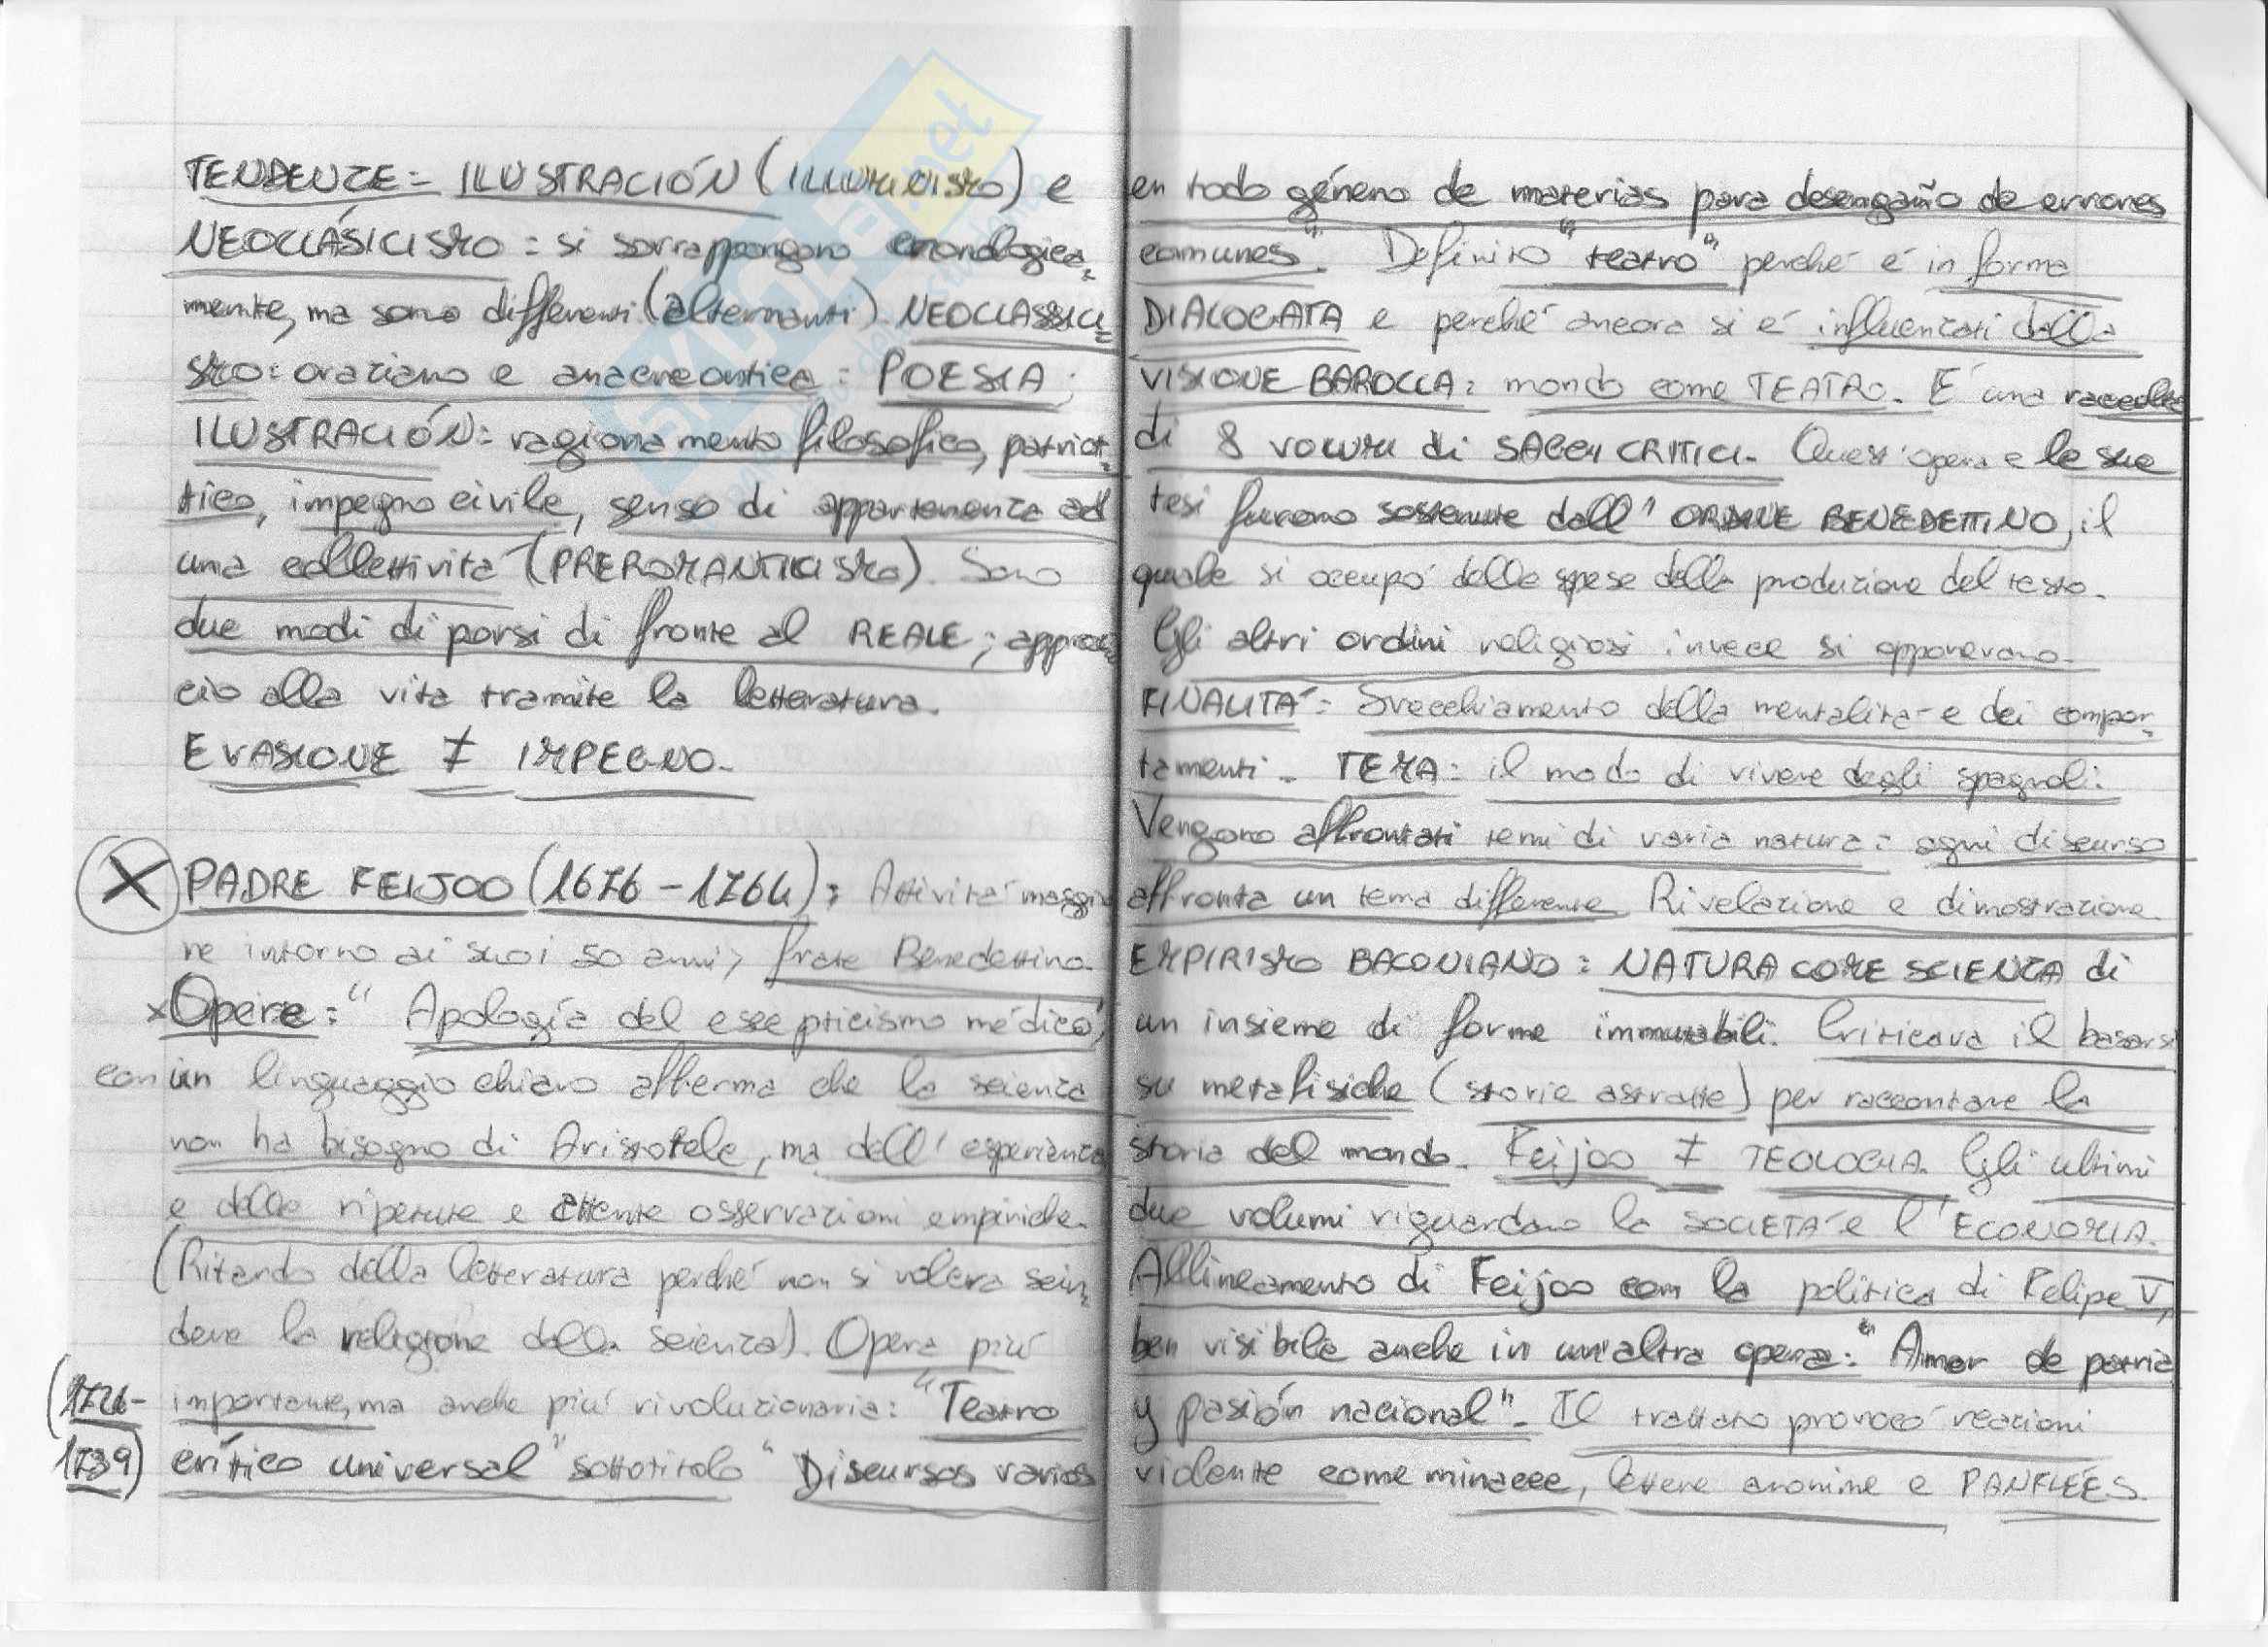 TENDENZE = ILUSTRACIÓN (ILLUMINISMO) e
NEOCLÁSICISMO : si sovrappongono cronologica=
mente, ma sono differenti (alternanti). NEOCLASSICI=
SMO: oraziano e anacreontica : POESIA ;
ILUSTRACIÓN: ragionamento filosofico, patriot=
tico, impegno civile, senso di appartenenza ad
una collettività (PREROMANTICISMO). Sono
due modi di porsi di fronte al REALE; approc=
cio alla vita tramite la letteratura.
EVASIONE ≠ IMPEGNO.
X PADRE FEIJOO (1676-1764): Attività maggio
re intorno ai suoi 50 anni, frate Benedettino.
x Opere: "Apologia del escepticismo médico",
con un linguaggio chiaro afferma che la scienza
non ha bisogno di Aristotele, ma dell'esperienza
e delle ripetute e attente osservazioni empiriche.
(Ritardo della letteratura perché non si voleva scin=
dere la religione della scienza). Opera più
(1726- importante, ma anche più rivoluzionaria: "Teatro
1739) crítico universal" sottotitolo "Discursos varios
en todo género de materias para desengaño de errores
comunes". Definito "teatro" perché è in forma
DIALOGATA e perché ancora si è influenzati dalla
VISIONE BAROCCA: mondo come TEATRO. È una raccolta
di 8 VOLUMI di SAGGI CRITICI. Quest'opera e le sue
tesi furono sostenute dall'ORDINE BENEDETTINO, il
quale si occupò delle spese della produzione del testo.
Gli altri ordini religiosi invece si opponevano.
FINALITÀ: Svecchiamento della mentalità e dei compor=
tamenti. TEMA: il modo di vivere degli spagnoli.
Vengono affrontati temi di varia natura: ogni discurso
affronta un tema differente. Rivelazione e dimostrazione.
EMPIRISMO BACONIANO: NATURA COME SCIENZA di
un insieme di forme immutabili. Criticava il basarsi
su metafisiche (storie astratte) per raccontare la
storia del mondo. Feijoo ≠ TEOLOGIA. Gli ultimi
due volumi riguardano la SOCIETÀ e l'ECONOMIA.
Allineamento di Feijoo con la politica di Felipe V,
ben visibile anche in un'altra opera: "Amor de patria
y pasión nacional". Il trattato provocò reazioni
violente come minacce, lettere anonime e PANFLÉES.